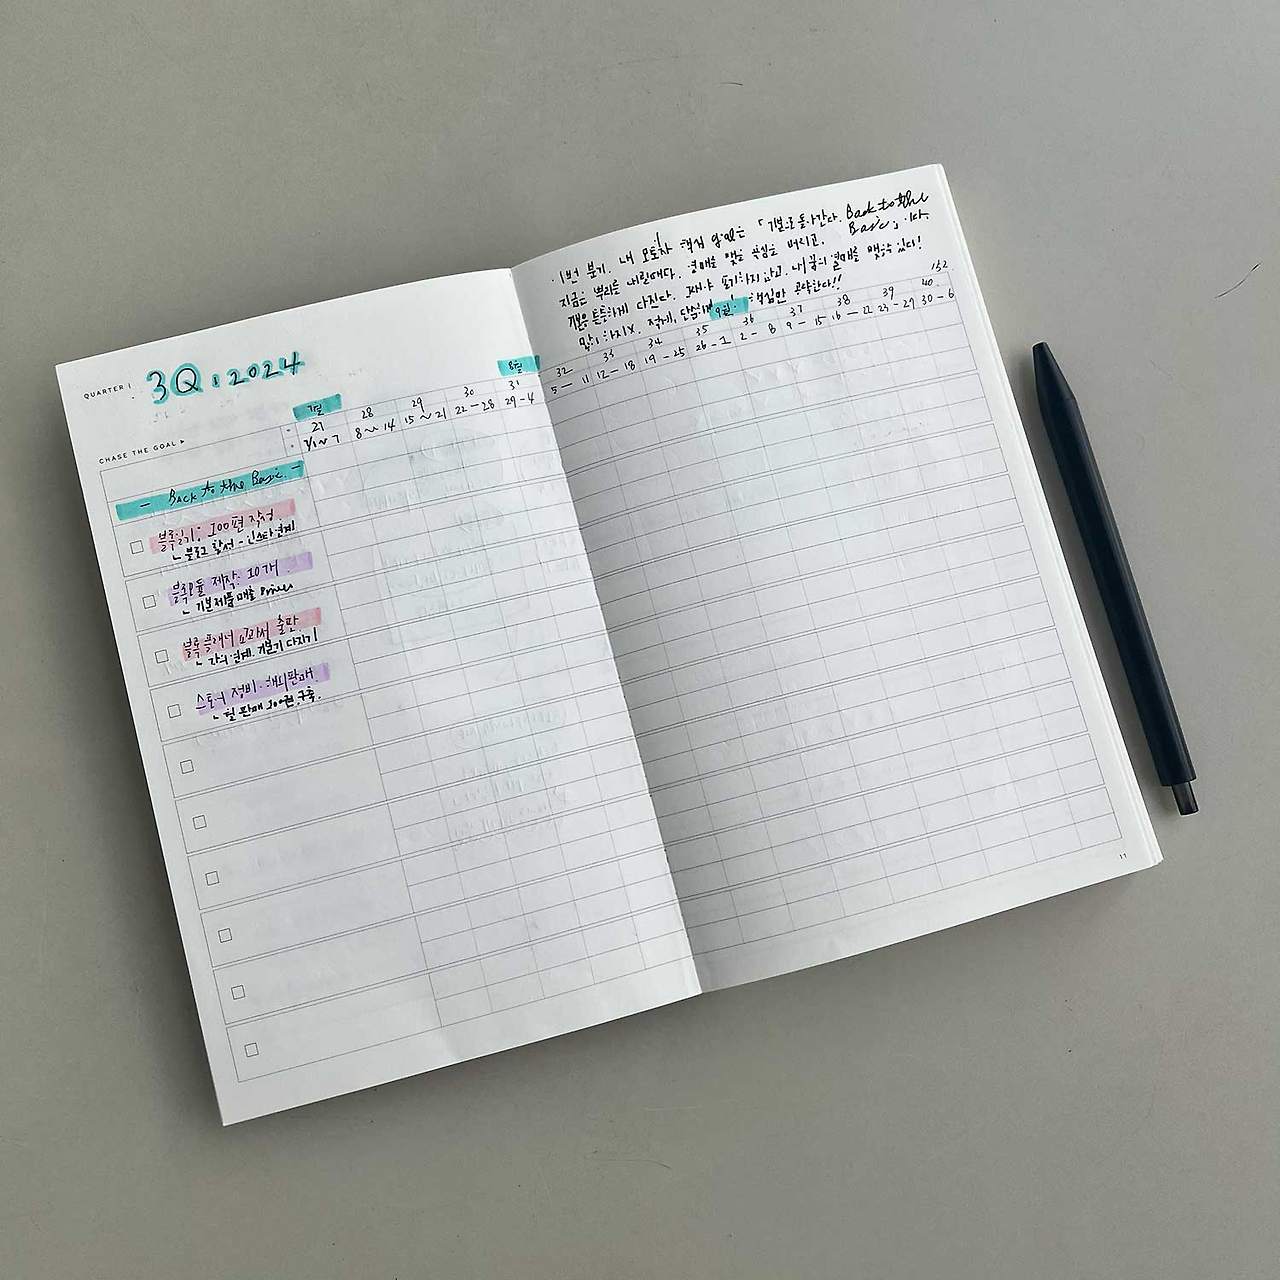 QUARTER | 3Q. 2024
CHASE THE GOAL ▸
7월
27 28 29 30 31
7/1~7 8~14 15~21 22-28 29-4
8월
- Back to the Basic. -
블룩일기: 100편 작성.
ㄴ 블로그 활성 - 인스타 연계
제작: 10개.
ㄴ 기본제품 매출
블룩플래너 교과서 출판.
ㄴ 강의 연계. 기본기 다지기
스토어 정비. 해외판매.
ㄴ 월 판매 100권 구축.
이번 분기. 내 모토자 핵심 은 「기본으로 돌아간다. Back to the
Basic」 이다.
지금은 뿌리를 내릴때다. 열매를 맺을 욕심을 버리고.
기본을 튼튼하게 다진다. 그래야 포기하지 않고. 내 꿈의 열매를 맺을수 있다!
많이 하지X. 적게, 단순하게! 핵심만 공략한다!!
9월.
32 33 34 35 36 37 38 39 40
5-11 12-18 19-25 26-1 2-8 9-15 16-22 23-29 30-6
11